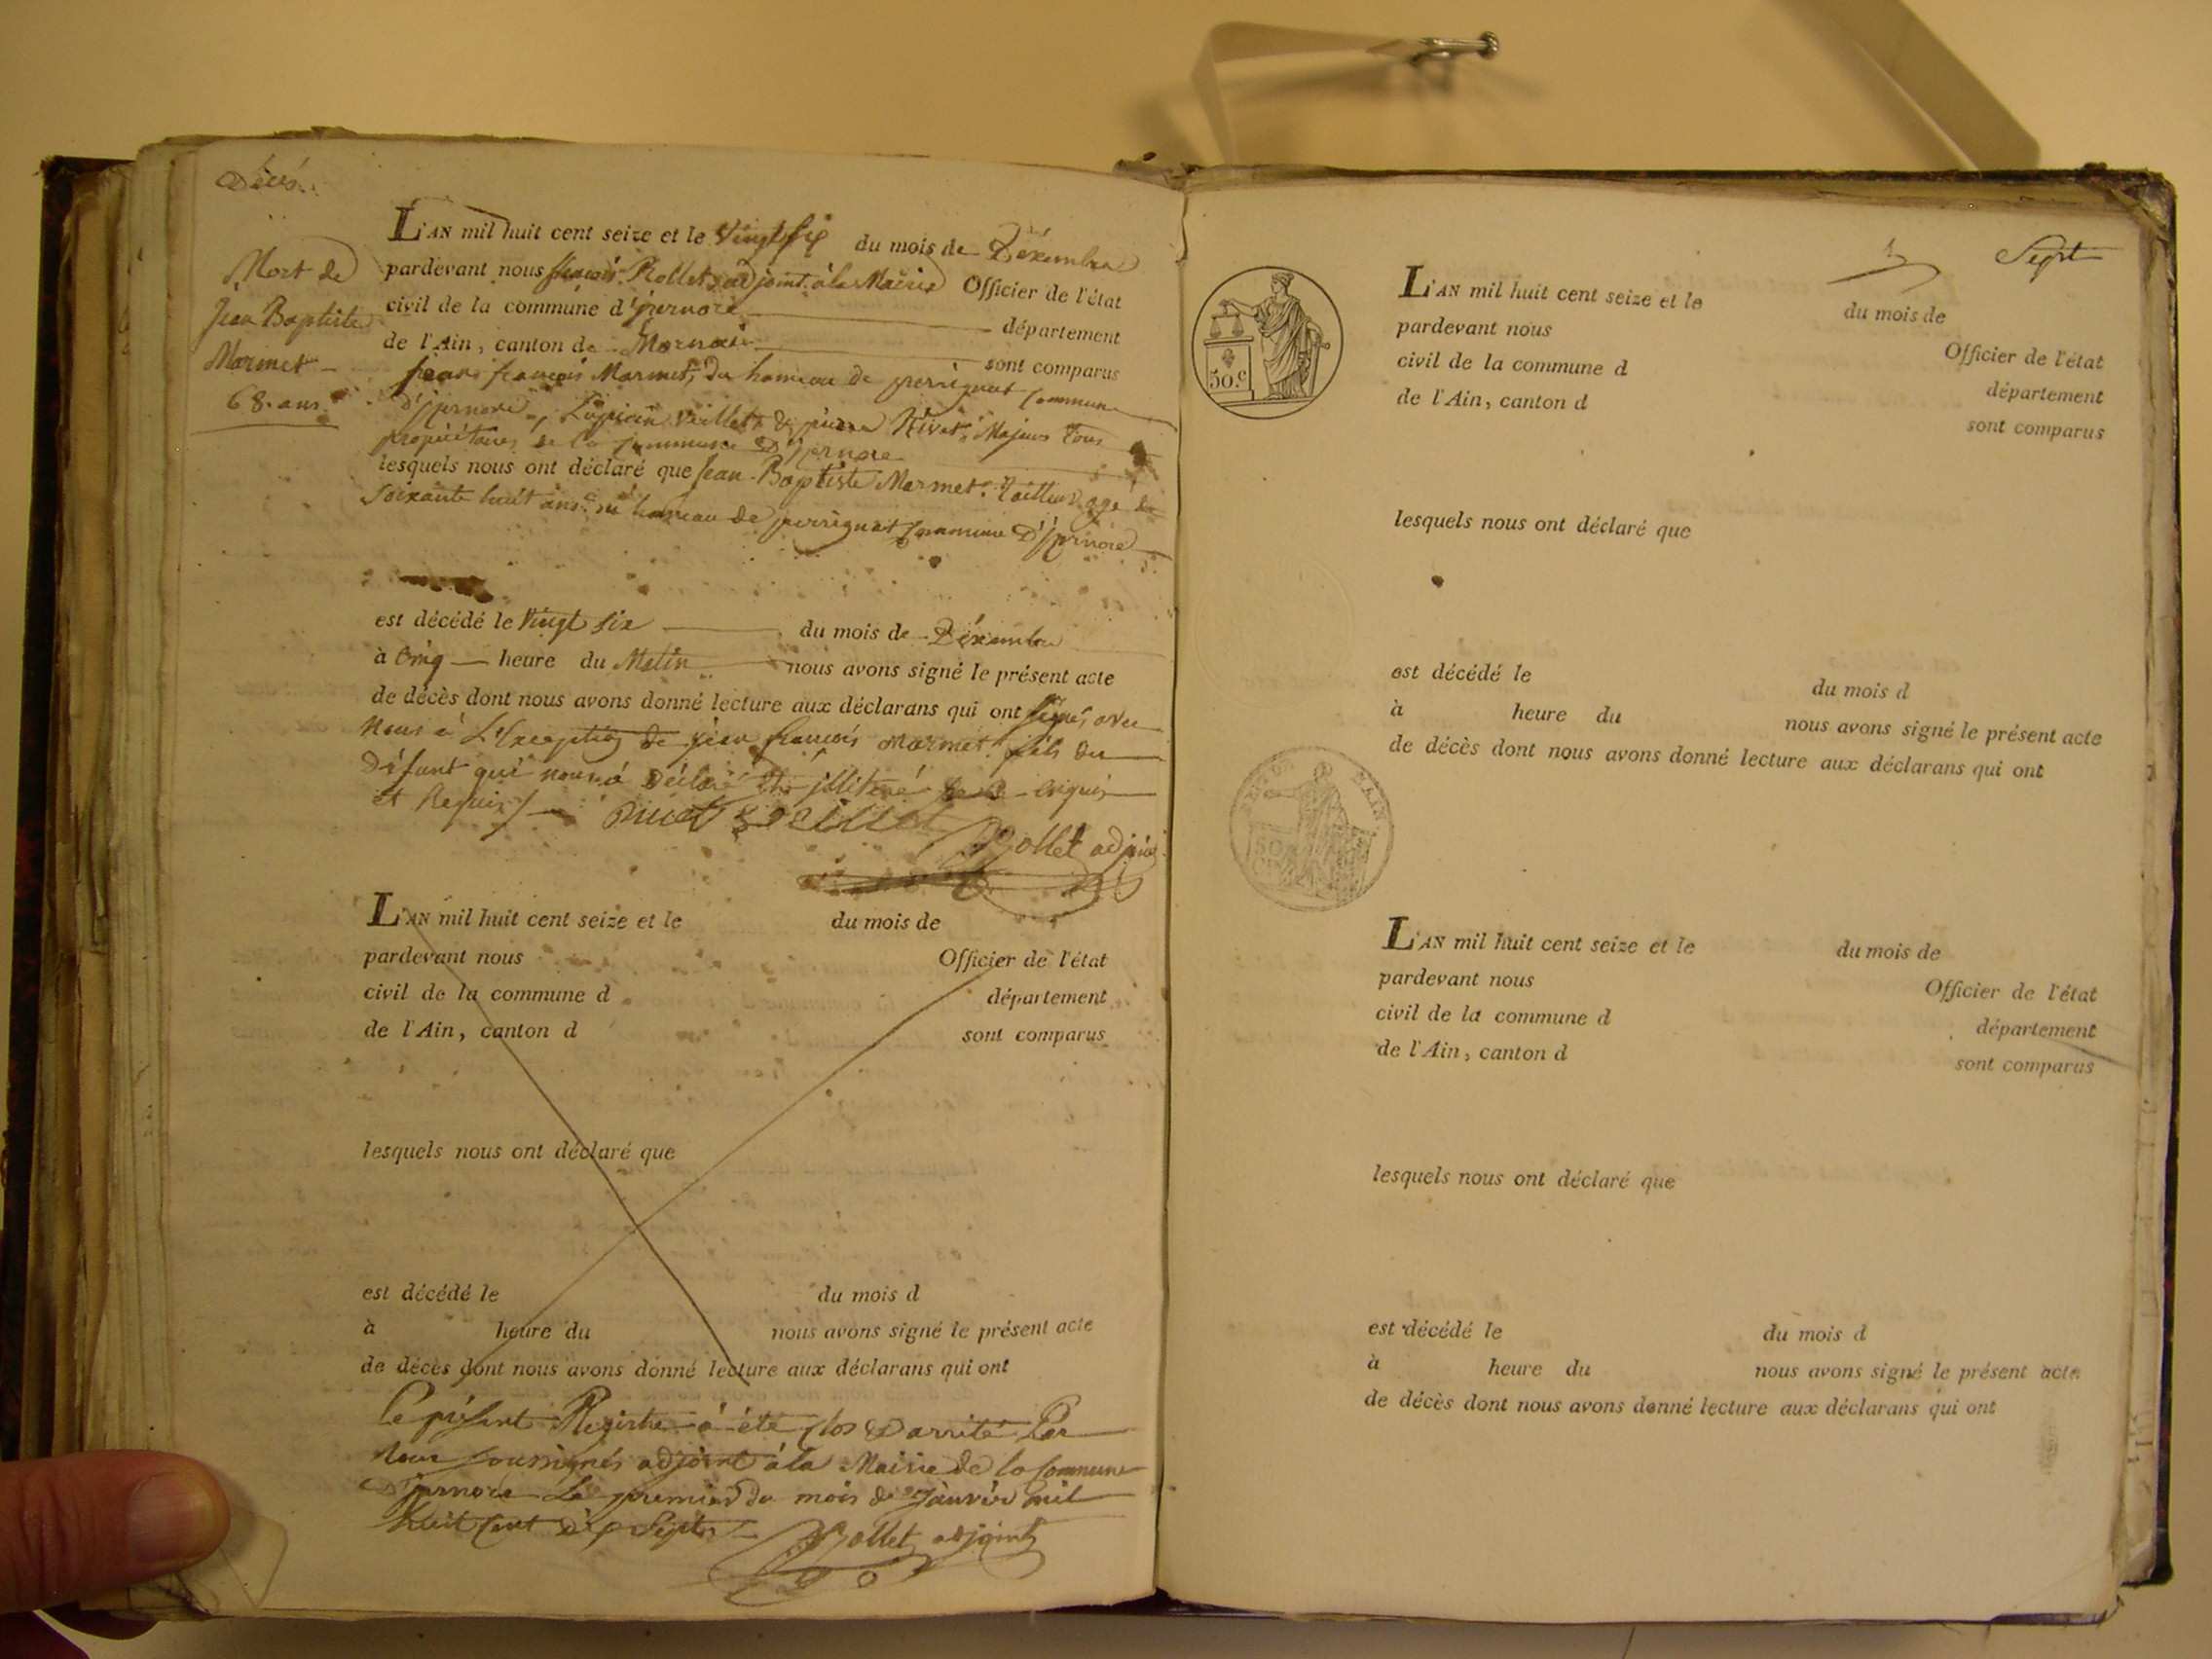 Décés.
Mort de
Jean Baptiste
Marmet
68. ans
L'AN mil huit cent seize et le vingt six du mois de Décembre
pardevant nous françois Rollet adjoint à la Mairie Officier de l'état
civil de la commune d'izernore département
de l'Ain, canton de sont comparus
jean françois Marmet, du hameau de perrignat Commune
D'izernore, Veillet & pierre Rivet, Majeurs tous
propriétaires de la Commune D'izernore
lesquels nous ont déclaré que Jean Baptiste Marmet. tailleur agé de
soixante huit ans. hameau de perrignat Commune D'izernore
est décédé le vingt six du mois de Décembre
à cinq heure du Matin nous avons signé le présent acte
de décès dont nous avons donné lecture aux déclarans qui ont signés avec
Nous à L'Exception de jean françois Marmet fils du
Défunt qui nous a Déclaré illiteré enquis
et Requis
Rivet Veillet
Rollet adjoint
L'AN mil huit cent seize et le du mois de
pardevant nous Officier de l'état
civil de la commune d département
de l'Ain, canton d sont comparus
lesquels nous ont déclaré que
est décédé le du mois d
à heure du nous avons signé le présent acte
de décès dont nous avons donné lecture aux déclarans qui ont
Le présent Registre a été clos & arrité Par
Nous soussignés adjoint à la Mairie de la Commune
D'izernore Le premier du mois de Janvier mil
huit Cent dix Sept
Rollet adjoint
Sept
50.c
L'AN mil huit cent seize et le du mois de
pardevant nous Officier de l'état
civil de la commune d département
de l'Ain, canton d sont comparus
lesquels nous ont déclaré que
est décédé le du mois d
à heure du nous avons signé le présent acte
de décès dont nous avons donné lecture aux déclarans qui ont
L'AN mil huit cent seize et le du mois de
pardevant nous Officier de l'état
civil de la commune d département
de l'Ain, canton d sont comparus
lesquels nous ont déclaré que
est décédé le du mois d
à heure du nous avons signé le présent acte
de décès dont nous avons donné lecture aux déclarans qui ont